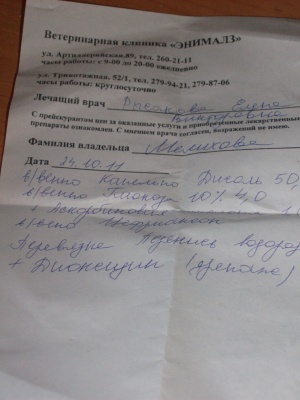 Ветеринарная клиника «ЭНИМАЛЗ»
ул. Артиллерийская,89, тел. 260-21-11
часы работы: с 9-00 до 20-00 ежедневно
ул. Трикотажная, 52/1, тел. 279-94-21, 279-87-06
часы работы: круглосуточно
Лечащий врач Елена
Викторовна
С прейскурантом цен за оказанные услуги и приобретённые лекарственные
препараты ознакомлен. С мнением врача согласен, возражений не имею.
Фамилия владельца Меликова
Дата 24.10.11
в/венно Капельно Дисоль 50,
в/венно Глюкоза 10% 4,0
+ Аскорбиновая
в/венно
Перевязка Перекись водород
+ Диоксидин